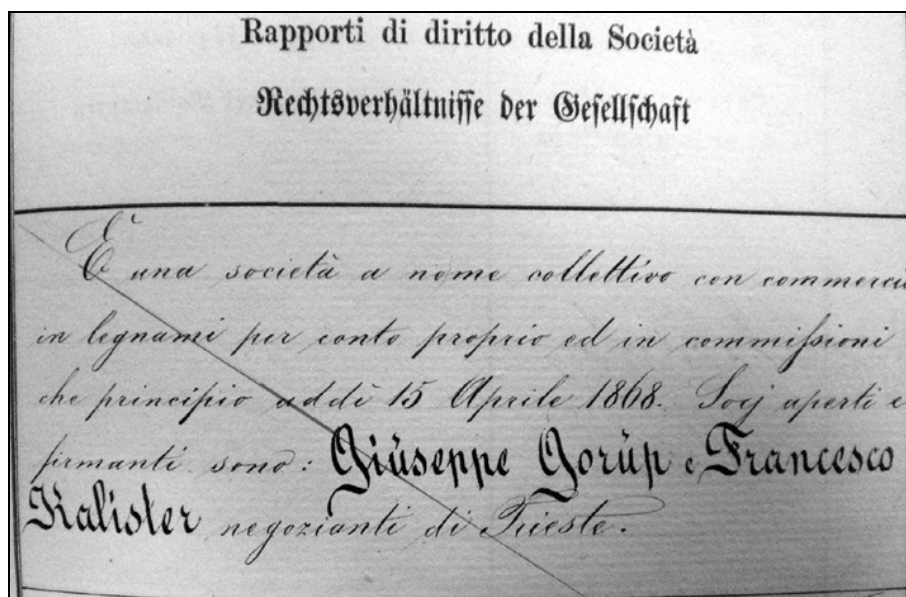 Rapporti di diritto della Società
Rechtsverhältnisse der Gesellschaft
È una società a nome collettivo con commerci
in legnami per conto proprio ed in commissioni
che principio addì 15 Aprile 1868. Socj aperti e
firmanti sono: Giuseppe Gorup e Francesco
Kalister negozianti di Trieste.